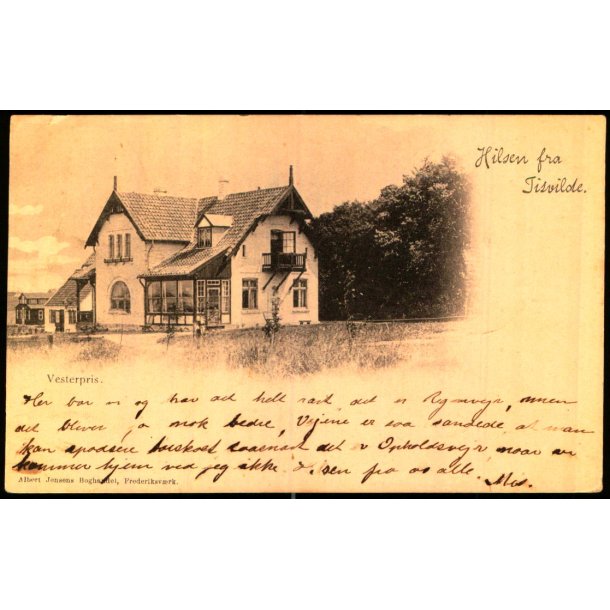 Hilsen fra
Tisvilde.
Vesterpris.
Her bor vi og har det helt rart, det er Regnvejr, men
det bliver jo nok bedre, Vejene er saa sandede, at man
kan spadsere barfodet saasnart det er Opholdsvejr naar vi
kommer hjem ved jeg ikke. Hilsen fra os alle. Mis.
Albert Jensens Boghandel, Frederiksværk.